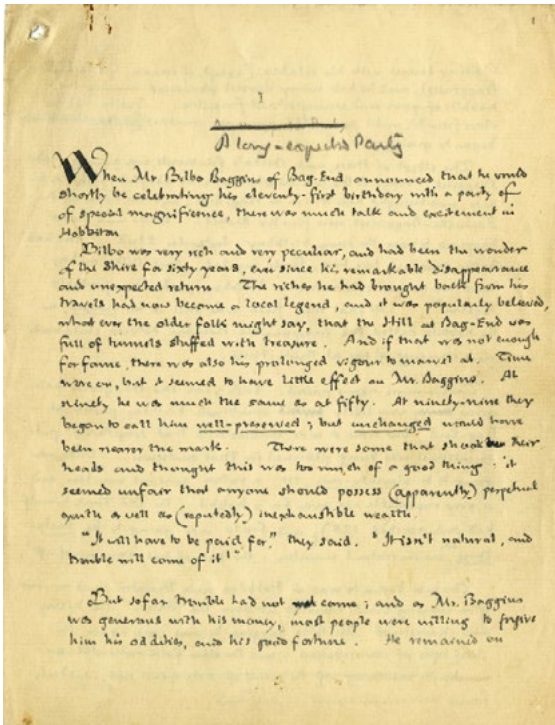 1
A long-expected Party
When Mr Bilbo Baggins of Bag-End announced that he would
shortly be celebrating his eleventy-first birthday with a party of
of special magnificence, there was much talk and excitement in
Hobbiton
Bilbo was very rich and very peculiar, and had been the wonder
of the Shire for sixty years, ever since his remarkable disappearance
and unexpected return. The riches he had brought back from his
travels had now become a local legend, and it was popularly believed,
whatever the older folk might say, that the Hill at Bag-End was
full of tunnels stuffed with treasure. And if that was not enough
for fame, there was also his prolonged vigour to marvel at. Time
wore on, but it seemed to have little effect on Mr. Baggins. At
ninety he was much the same as at fifty. At ninety-nine they
began to call him well-preserved; but unchanged would have
been nearer the mark. There were some that shook their
heads and thought this was too much of a good thing: it
seemed unfair that anyone should possess (apparently) perpetual
youth as well as (reputedly) inexhaustible wealth.
"It will have to be paid for," they said. "It isn't natural, and
trouble will come of it!"
But so far trouble had not come; and as Mr. Baggins
was generous with his money, most people were willing to forgive
him his oddities, and his good fortune. He remained on